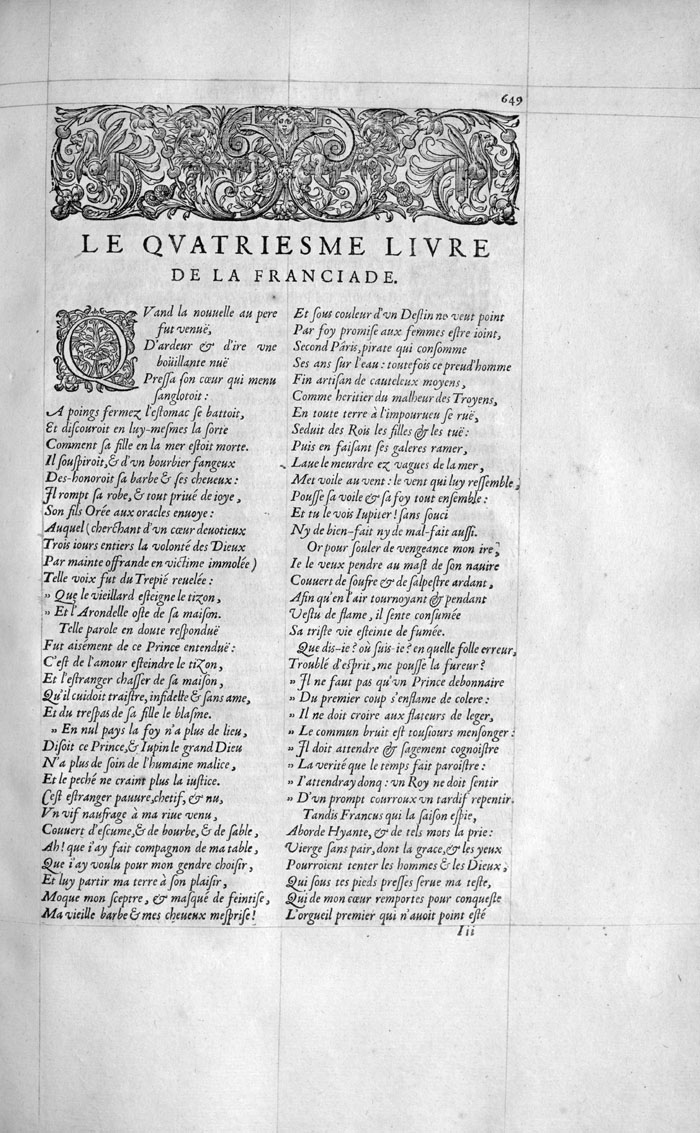 649
LE QVATRIESME LIVRE
DE LA FRANCIADE.
QVand la nouuelle au pere
fut venuë,
D'ardeur & d'ire vne
boüillante nuë
Pressa son cœur qui menu
sanglotoit:
A poings fermez l'estomac se battoit,
Et discouroit en luy-mesmes la sorte
Comment sa fille en la mer estoit morte.
Il souspiroit, & d'vn bourbier fangeux
Des-honoroit sa barbe & ses cheueux:
Il rompt sa robe, & tout priué de ioye,
Son fils Orée aux oracles enuoye:
Auquel (cherchant d'vn cœur deuotieux
Trois iours entiers la volonté des Dieux
Par mainte offrande en victime immolée)
Telle voix fut du Trepié reuelée:
" Que le vieillard esteigne le tizon,
" Et l'Arondelle oste de sa maison.
Telle parole en doute responduë
Fut aisément de ce Prince entenduë:
C'est de l'amour esteindre le tizon,
Et l'estranger chasser de sa maison,
Qu'il cuidoit traistre, infidelle & sans ame,
Et du trespas de sa fille le blasme.
" En nul pays la foy n'a plus de lieu,
Disoit ce Prince, & Iupin le grand Dieu
N'a plus de soin de l'humaine malice,
Et le peché ne craint plus la iustice.
Cest estranger pauure, chetif, & nu,
Vn vif naufrage à ma riue venu,
Couuert d'escume, & de bourbe, & de sable,
Ah! que i'ay fait compagnon de ma table,
Que i'ay voulu pour mon gendre choisir,
Et luy partir ma terre à son plaisir,
Moque mon sceptre, & masqué de feintise,
Ma vieille barbe & mes cheueux mesprise!
Et sous couleur d'vn Destin ne veut point
Par foy promise aux femmes estre ioint,
Second Pâris, pirate qui consomme
Ses ans sur l'eau: toutefois ce preud'homme
Fin artisan de cauteleux moyens,
Comme heritier du malheur des Troyens,
En toute terre à l'impourueu se ruë,
Seduit des Rois les filles & les tuë:
Puis en faisant ses galeres ramer,
Laue le meurdre ez vagues de la mer,
Met voile au vent: le vent qui luy ressemble,
Pousse sa voile & sa foy tout ensemble:
Et tu le vois Iupiter! sans souci
Ny de bien-fait ny de mal-fait aussi.
Or pour souler de vengeance mon ire,
Ie le veux pendre au mast de son nauire
Couuert de soufre & de salpestre ardant,
Afin qu'en l'air tournoyant & pendant
Vestu de flame, il sente consumée
Sa triste vie esteinte de fumée.
Que dis-ie? où suis-ie? en quelle folle erreur,
Troublé d'esprit, me pousse la fureur?
" Il ne faut pas qu'vn Prince debonnaire
" Du premier coup s'enflame de colere:
" Il ne doit croire aux flateurs de leger,
" Le commun bruit est tousiours mensonger:
" Il doit attendre & sagement cognoistre
" La verité que le temps fait paroistre:
" I'attendray donq: vn Roy ne doit sentir
" D'vn prompt courroux vn tardif repentir.
Tandis Francus qui la saison espie,
Aborde Hyante, & de tels mots la prie:
Vierge sans pair, dont la grace, & les yeux
Pourroient tenter les hommes & les Dieux,
Qui sous tes pieds presses serue ma teste,
Qui de mon cœur remportes pour conqueste
L'orgueil premier qui n'auoit point esté
Iii